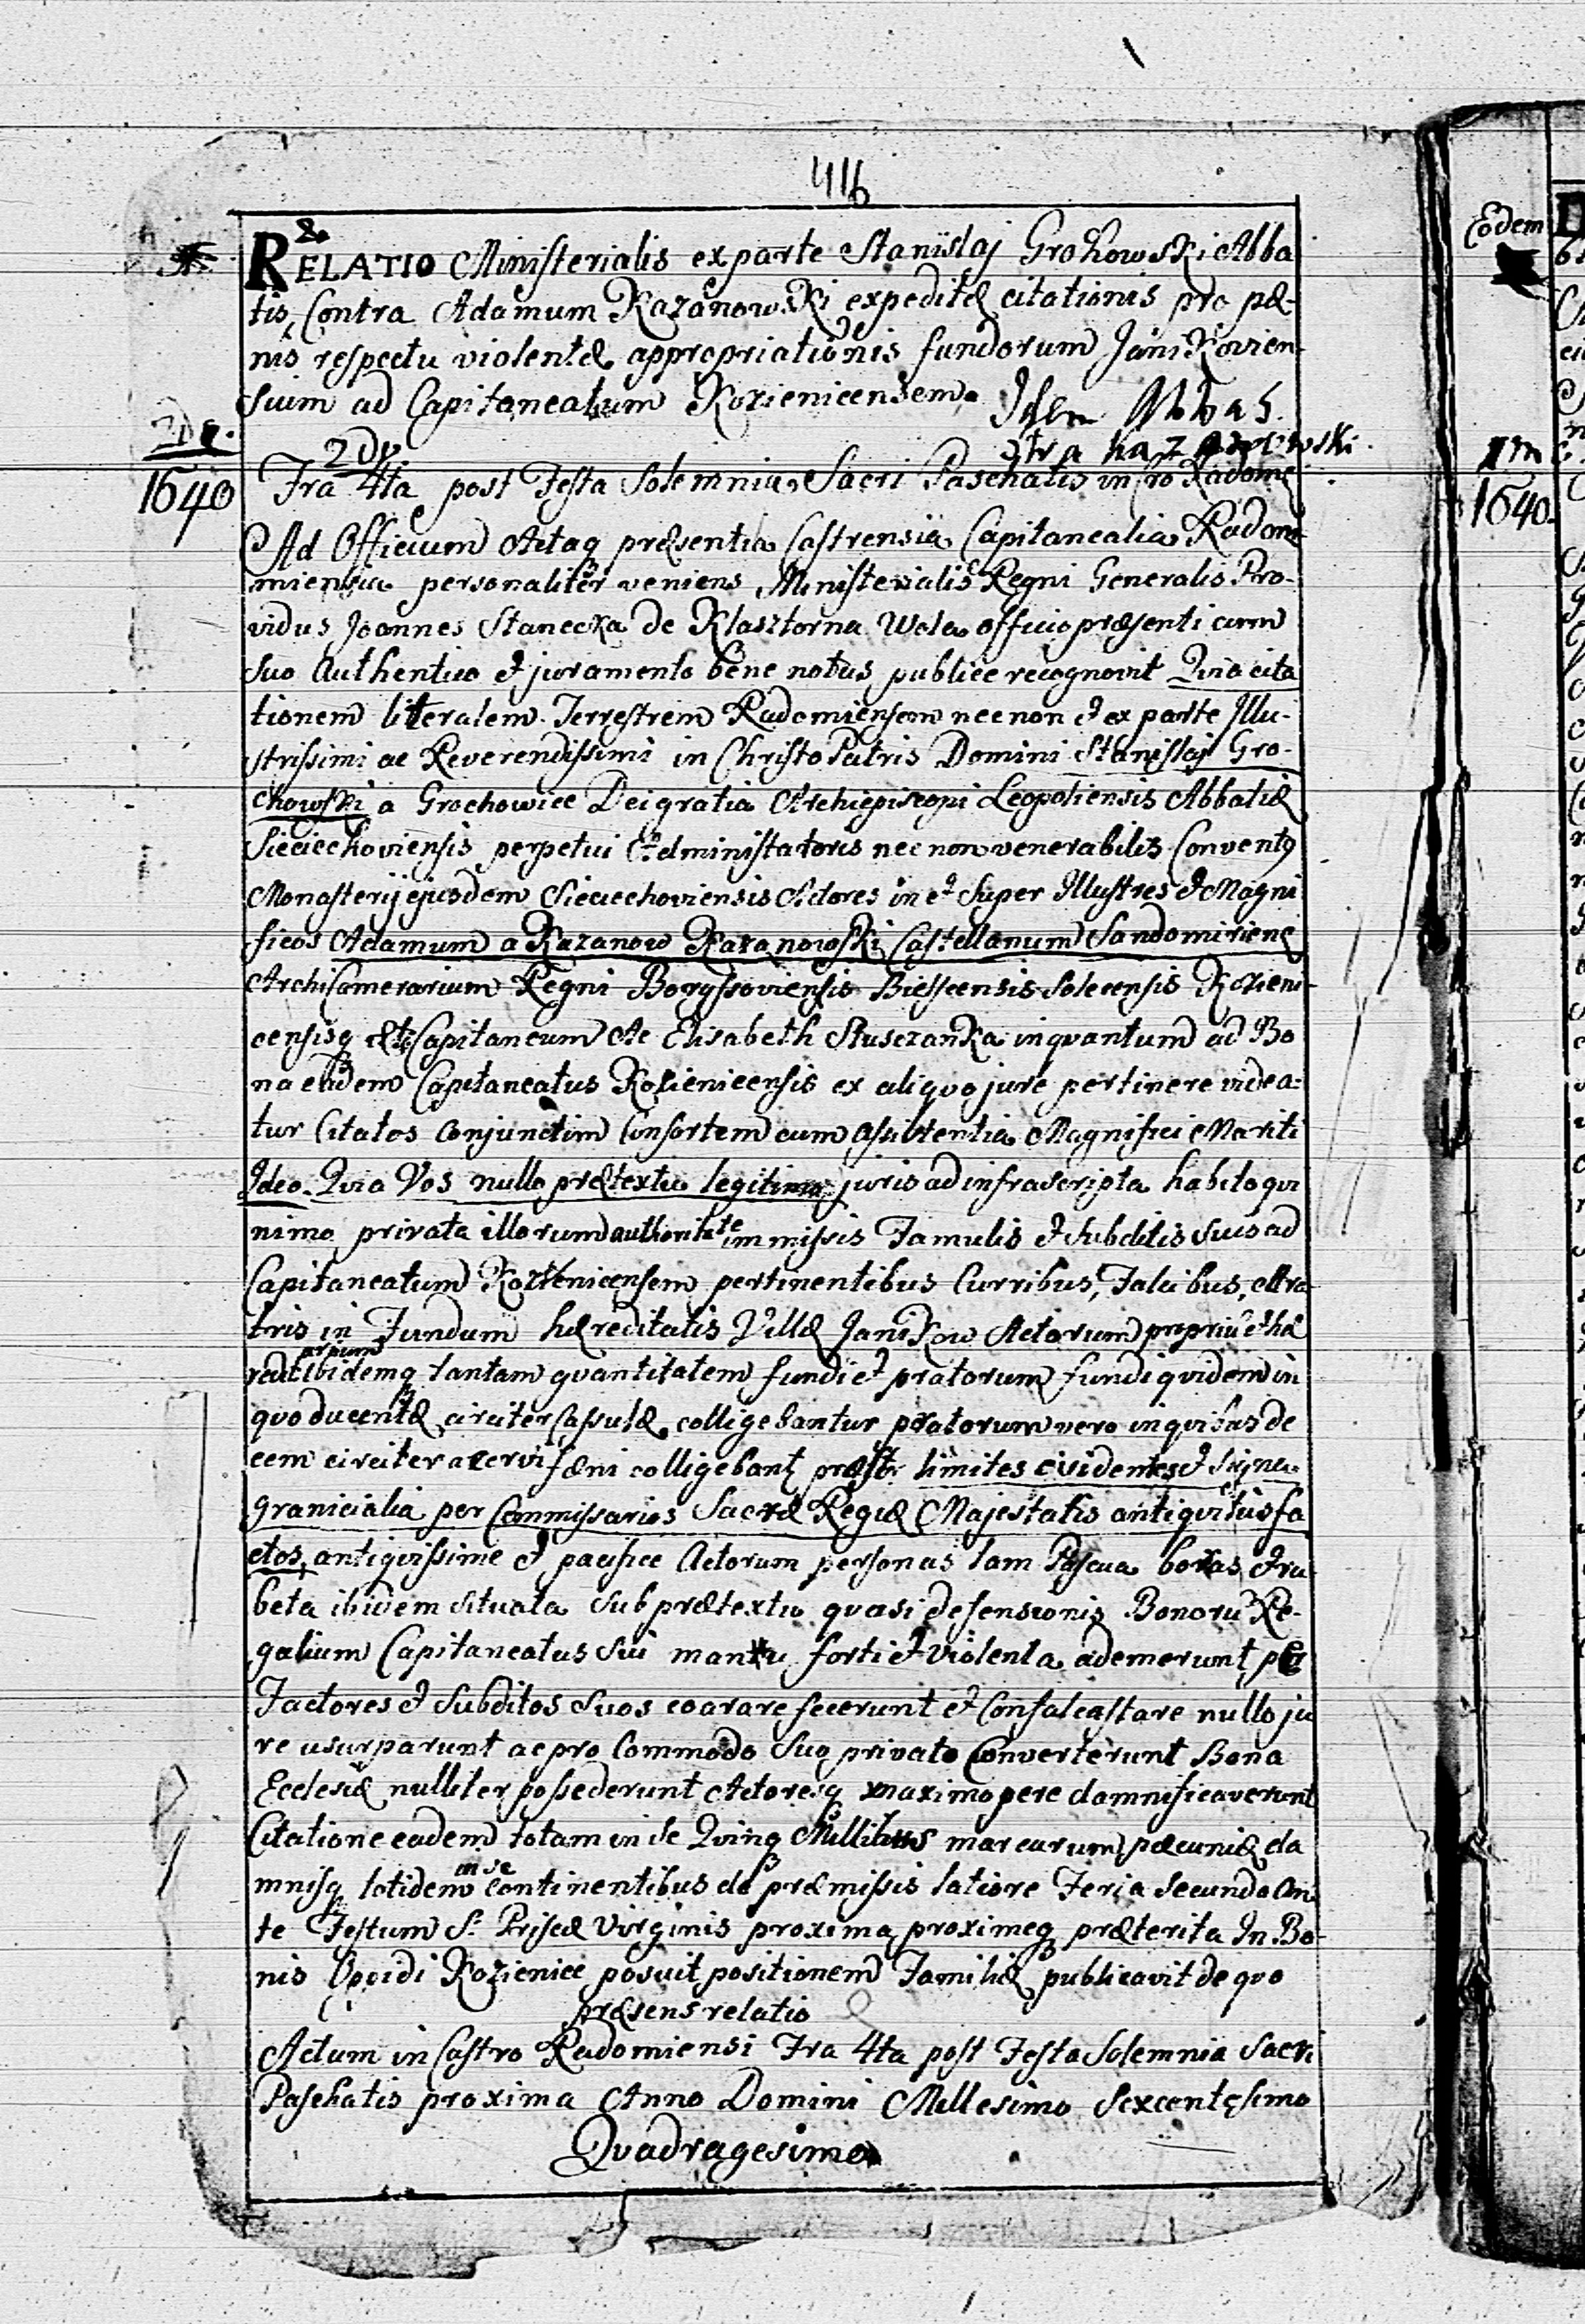 416
RELATIO Ministerialis ex parte Stanislaj Grohowski Abba
tis, Contra Adamum Kazanowski expeditæ citationis pro pæ-
nis respectu violentæ appropriationis fundorum Janikovien-
sium ad Capitaneatum Kozienicensem. Idem Abbas
ctra Kazanowski
2do
1640 Fra 4ta post Festa Solemnia Sacri Paschatis in Cro Radomi
Ad Officium Actaq præsentia Castrensia Capitanealia Radom
miensia personaliter veniens Ministerialis Regni Generalis Pro-
vidus Joannes Stanecka de Klasztorna Wola officio præsenti cum
suo Authentico et juramento bene notus publice recognovit Quia cita
tionem literalem Terrestrem Radomiensem necnon et ex parte Illu-
strissimi ac Reverendissimi in Christo Patris Domini Stanislaj Gro-
chowski a Grochowice Dei gratia Archiepiscopi Leopoliensis Abbatiæ
Sieciechoviensis perpetui Administatoris nec non venerabilis Conventq
Monasterij ejusdem Sieciechoviensis Actores in et Super Illustres et Magni
ficos Adamum a Kazanow Kazanowski Castellanum Sandomirienę
Archicamerarium Regni Boryssoviensis Biesscensis Solecensis Kozieni-
censisq Capitaneum Ac Elisabeth Sluszczanka inquantum ad Bo
na eadem Capitaneatus Kozienicensis ex aliquo jure pertinere videa=
tur Citatos Conjunctim Consortem cum assistentia Magnifici Mariti
Ideo Quia Vos nullo prætextu legitimo juris ad infrascripta habito qvi
nimo privata illorum authoritate immissis Famulis et Subditis suis ad
Capitaneatum Kozienicensem pertinentibus Curribus, Falcibus, Ara
tris in Fundum hæreditatis Villæ Janikow Actorum propriu et hæ
redit arium ibidemq tantam quantitatem fundi et pratorum fundi quidem in
quo ducentæ circiter Cassulæ colligebantur pratorum vero in quibus de
cem circiter acervi fæni colligebant præter limites evidentes et Signa
granicialia per Commissarios Sacræ Regiæ Majestatis antiqvitus fa
ctos, antiqvissime et pacifice Actorum personas tam Pascua boras et ru
beta ibidem situata sub prætextu quasi defensionis Bonoru Re-
galium Capitaneatus sui manu forti et violenta ademerunt per
Factores et Subditos suos coarare fecerunt et Confalcastare nullo ju
re usurparunt ac pro Commodo suo privato Converterunt Bona
Ecclesiæ nulliter possederunt Actoresq maximopere damnificaverunt
Citatione eadem totam in se Quinq Millibus marcarum pæcuniæ da
mnisq totidem in se continentibus de præmissis latiore Feria Secunda An
te Festum S. Priscæ Virginis proxima proximeq præterita In Bo-
nis Oppidi Kozienice posuit positionem Familiæ publicavit de quo
præsens relatio
Actum in Castro Radomiensi Fra 4ta post Festa Solemnia Sacri
Paschatis proxima Anno Domini Millesimo Sexcentesimo
Quadragesimo
Eodem
1640